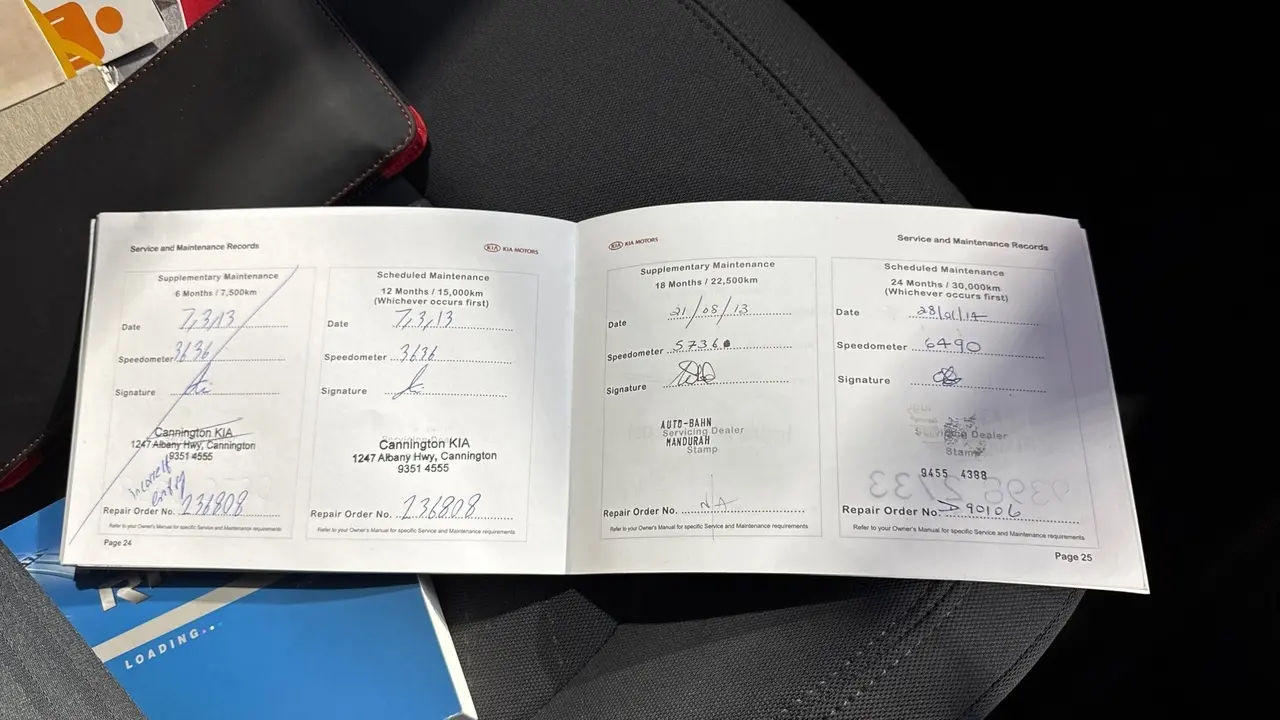 Service and Maintenance Records
KIA KIA MOTORS
Supplementary Maintenance
6 Months / 7,500km
Date 7/3/13
Speedometer 3636
Signature
Cannington KIA
1247 Albany Hwy, Cannington
9351 4555
Incorrect
entry
Repair Order No. 236808
Refer to your Owner's Manual for specific Service and Maintenance requirements
Page 24
Scheduled Maintenance
12 Months / 15,000km
(Whichever occurs first)
Date 7/3/13
Speedometer 3636
Signature
Cannington KIA
1247 Albany Hwy, Cannington
9351 4555
Repair Order No. 236808
Refer to your Owner's Manual for specific Service and Maintenance requirements
KIA KIA MOTORS
Service and Maintenance Records
Supplementary Maintenance
18 Months / 22,500km
Date 21/08/13
Speedometer 5736
Signature
AUTO-BAHN
Servicing Dealer
MANDURAH
Stamp
Repair Order No. NA
Refer to your Owner's Manual for specific Service and Maintenance requirements
Scheduled Maintenance
24 Months / 30,000km
(Whichever occurs first)
Date 28/01/14
Speedometer 6490
Signature
Servicing Dealer
Stamp
9455 4388
Repair Order No. 90106
Refer to your Owner's Manual for specific Service and Maintenance requirements
Page 25
LOADING...